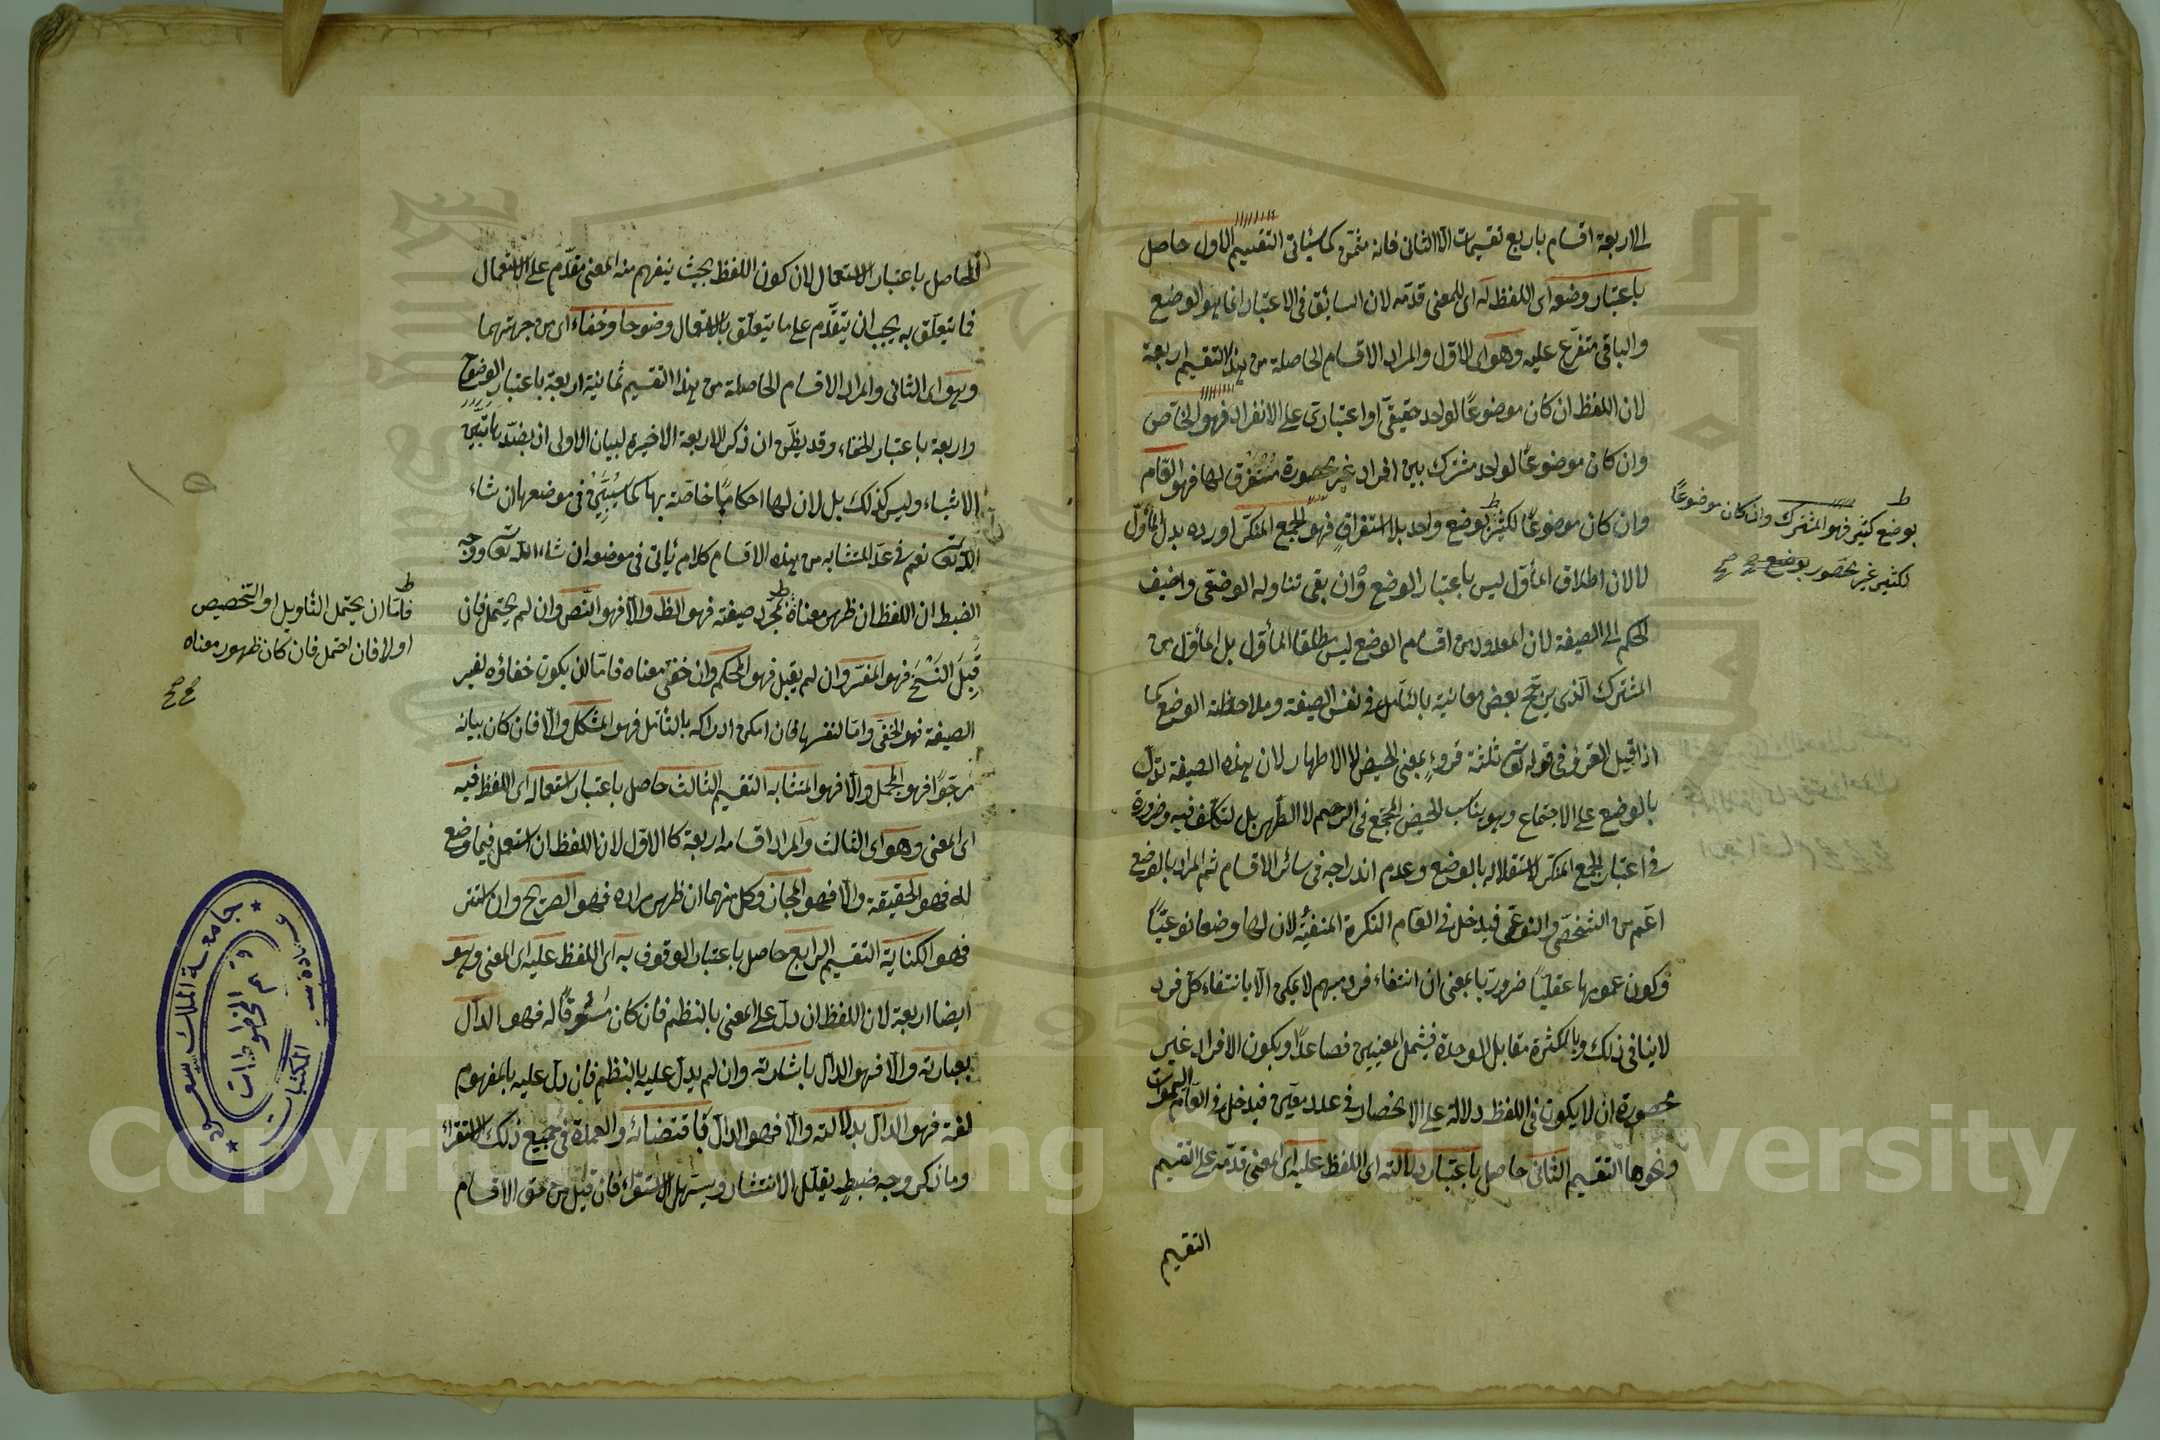 الى اربعة اقسام باربع تقسيمات الا الثانى فانه مثمن كما سيأتى التقسيم الاول حاصل
باعتبار وضعه اى اللفظ له اى للمعنى قدمه لان السابق فى الاعتبار انما هو الوضع
والباقى متفرع عليه وهو اى الاول والمراد الاقسام الحاصلة من هذا التقسيم اربعة
لان اللفظ ان كان موضوعًا لواحد حقيقى او اعتبارى على الانفراد فهو الخاص
وان كان موضوعًا لواحد مشترك بين افراد غير محصورة مستغرق لها فهو العام
وان كان موضوعًا لكثير بوضع واحد بلا استغراق فهو الجمع المنكر اورده بدل المأول
لا لان اطلاق المأول ليس باعتبار الوضع وان بقى تناوله الوضعى واضيف
الحكم الى الصيغة لان المعدود من اقسام الوضع ليس مطلقا المأول بل المأول من
المشترك الذى يرجح بعض معانيه بالتأمل فى نفس الصيغة وملاحظة الوضع كما
اذا قيل القرؤ فى قوله تعالى ثلثة قروء بمعنى الحيض لا الاطهار لان هذه الصيغة تدل
بالوضع على الاجتماع وهو يناسب الحيض المجتمع فى الرحم لا الطهر بل لتكلف فيه وضرورة
فى اعتبار الجمع المنكر لاستقلاله بالوضع وعدم اندراجه فى سائر الاقسام ثم المراد بالوضع
اعم من الشخصى والنوعى فيدخل فى العام النكرة المنفية لان لها وضعا نوعيًا
وكون عمومها عقليًا ضروريا بمعنى ان انتفاء فرد مبهم لا يمكن الا بانتفاء كل فرد
لا ينافى ذلك وبالكثرة مقابل الوحدة فيشمل المعنيين فصاعدًا وبكون الافراد غير
محصورة ان لا يكون فى اللفظ دلالة على الانحصار فى عدد معين فيدخل فى العام السموات
ونحوها التقسيم الثانى حاصل باعتبار دلالته اى اللفظ عليه اى المعنى قدمه على التقسيم
التقسيم
بوضع كثير فهو المشترك وان كان موضوعًا
لكثير غير محصور بوضع صح صح
الحاصل باعتبار الاستعمال لان كون اللفظ بحيث يتفهم منه المعنى مقدم على الاستعمال
فما يتعلق به يجب ان يتقدم على ما يتعلق بالاستعمال وضوحا وخفاء اى من جهتهما
وهو اى الثانى والمراد الاقسام الحاصلة من هذا التقسيم ثمانية اربعة باعتبار الوضوح
واربعة باعتبار الخفاء وقد يظن ان ذكر الاربعة الاخيرة لبيان الاولى اذ بضدها تتبين
الاشياء وليس كذلك بل لان لها احكامًا خاصة بها كما سيبين فى موضعها ان شاء
الله تعالى نعم فى عد المتشابه من هذه الاقسام كلام يأتى فى موضعه ان شاء الله تعالى ووجه
الضبط ان اللفظ ان ظهر معناه بمجرد صيغته فهو الظ والا فهو النص وان لم يحتمل فان
قبل النسخ فهو المفسر وان لم يقبل فهو المحكم وان خفى معناه فاما ان يكون خفاؤه لغير
الصيغة فهو الخفى واما لنفسها فان امكن ادراكه بالتأمل فهو المشكل والا فان كان بيانه
مرجوًا فهو المجمل والا فهو المتشابه التقسيم الثالث حاصل باعتبار استعماله اى اللفظ فيه
اى المعنى وهو اى الثالث والمراد اقسامه اربعة كالاول لان اللفظ ان استعمل فيما وضع
له فهو الحقيقة والا فهو المجاز وكل منهما ان ظهر مراده فهو الصريح وان استتر
فهو الكناية التقسيم الرابع حاصل باعتبار الوقوف به اى اللفظ عليه اى المعنى وهو
ايضا اربعة لان اللفظ ان دل على المعنى بالنظم فان كان مسوقًا له فهو الدال
بعبارته والا فهو الدال باشارته وان لم يدل عليه بالنظم فان دل عليه بالمفهوم
لغة فهو الدال بدلالته والا فهو الدال باقتضائه والعمدة فى جميع ذلك الاستقراء
وما ذكر وجه ضبط يقلل الانتشار ويسهل الاستقراء فان قيل من حق الاقسام
فاما ان يحتمل التأويل او التخصيص
اولا فان احتمل فان كان ظهور معناه
صح صح
جامعة الملك سعود
قسم المخطوطات
المكتبات
Copyright © King Saud University
1957